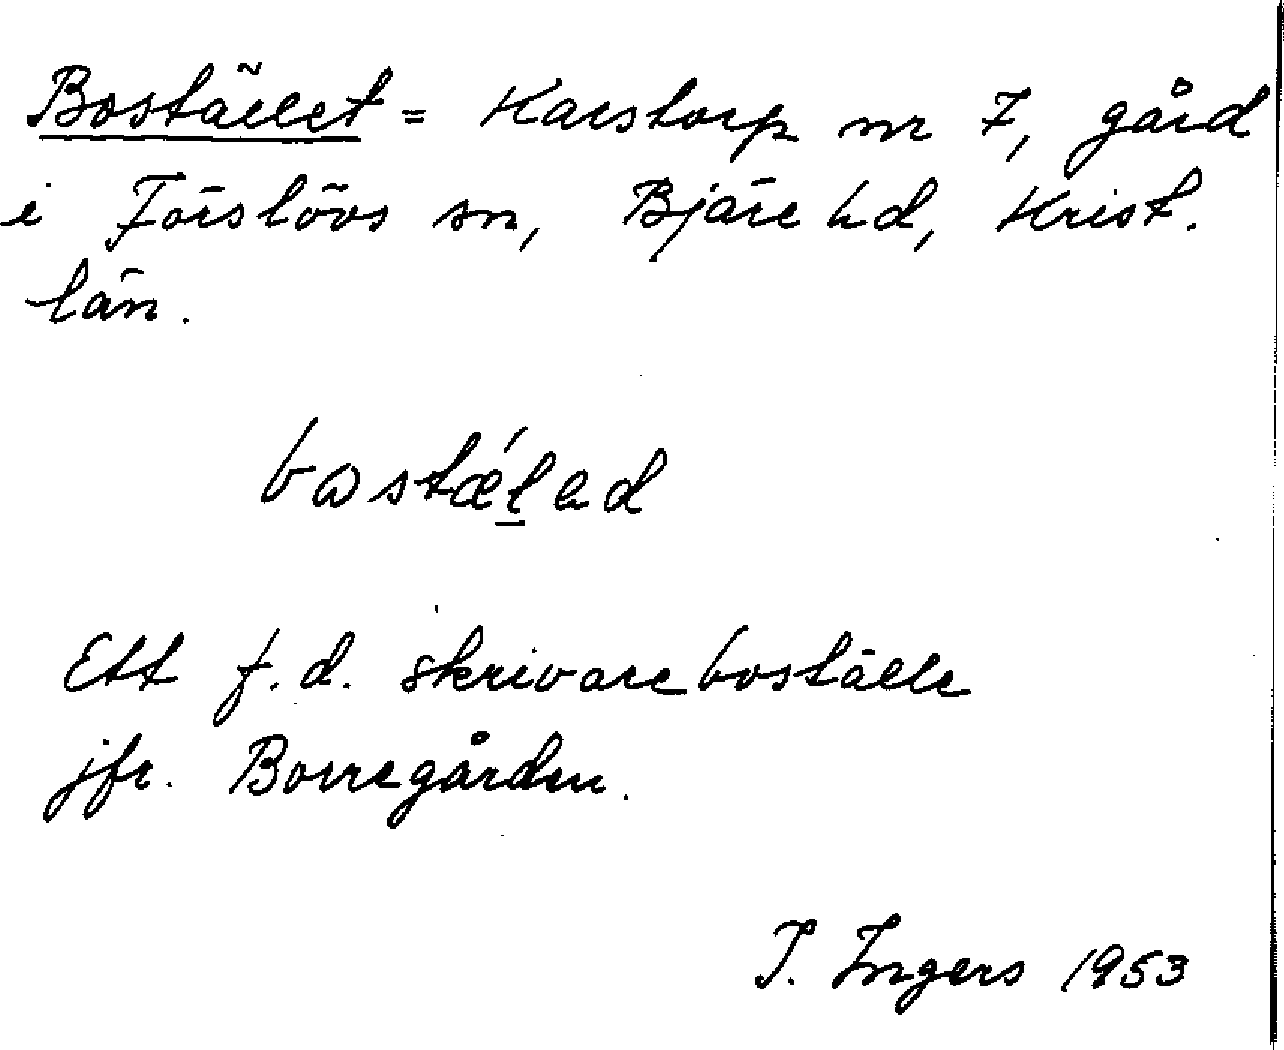 Bostället = Karstorp nr 7, gård
i Förslövs sn, Bjäre hd, Krist.
län.
bωstǽl̲ad
Ett f.d. skrivareboställe
jfr. Borregården.
I. Ingers 1953